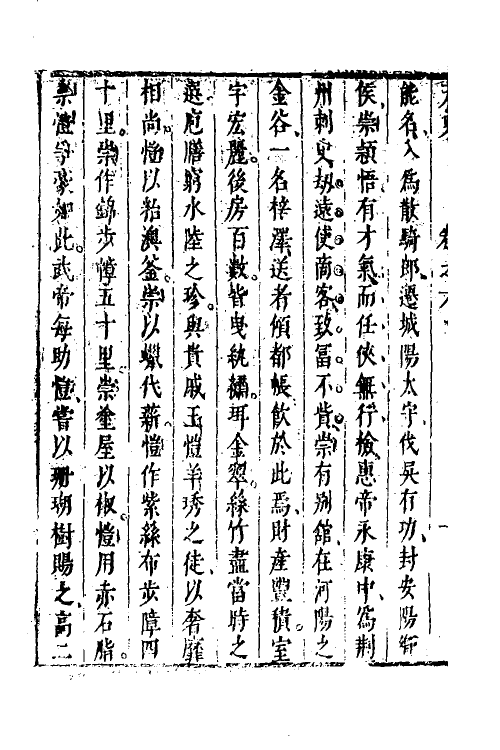 能名入爲散騎郎遷城陽太守伐吳有功封安陽鄉
侯崇頴悟有才氣而任俠無行檢惠帝永康中爲荆
州刺史劫遠使商客致富不貲崇有别舘在河陽之
金谷一名梓澤送者傾都帳飲於此焉財産豐積室
宇宏麗後房百數皆曳紈繡珥金翠絲竹盡當時之
選庖膳窮水陸之珍與貴戚王愷羊琇之徒以奢靡
相尚愷以粘澳釜崇以蠟代薪愷作紫絲布步障四
十里崇作錦步幛五十里崇塗屋以椒愷用赤石脂
崇愷爭豪如此武帝每助愷嘗以珊瑚樹賜之高二